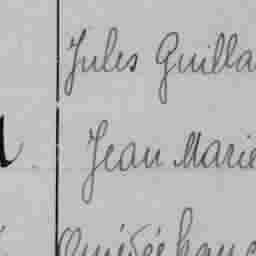 Jules Guilla
Jean Marie